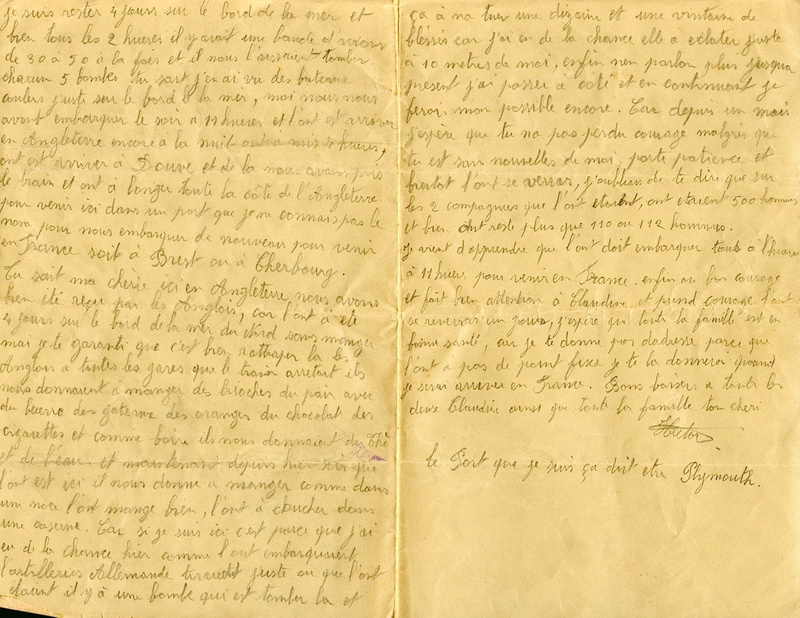 je suis rester 4 jours sur le bord de la mer et
bien tous les 2 hueres il y avait une bande d'avions
de 30 a 50 à la fois et il nous laissaient tomber
chacun 5 bombes tu sait j'en ai vu des bateaux
couler juste sur le bord de la mer, moi nous nous
avons embarquer le soir à 11 hueres et l'ont est arriver
en Angleterre encore a la nuit ont a mis 4 hueres,
ont est arriver à Douvre et de la nous avons pris
le train et ont a longer toute la côte de l'Angleterre
pour venir ici dans un port que je ne connais pas le
nom pour nous embarquer de nouveau pour venir
en France soit à Brest ou à Cherbourg.
Tu sait ma chérie ici en Angleterre nous avons
bien été reçu par les Anglais, car l'ont à été
4 jours sur le bord de la mer du Nord sans manger
mai je te garanti que c'est bien rattraper la les
Anglais a toutes les gares que le train arretait ils
nous donnaient à manger des brioches du pain avec
du buerre des gateaux des oranges du chocolat des
cigarettes et comme boire ils nous donnaient du Thé
et de l'eau. et maintenant depuis hier soir que
l'ont est ici il nous donne a manger comme dans
une noce l'ont mange bien, l'ont à coucher dans
une caserne. Car si je suis ici c'est parce que j'ai
eu de la chance hier comme l'ont embarquaient
l'artilleries Allemande tiraient juste ou que l'ont
étaient il y à une bombe qui est tomber la et
ça à na tuer une dizaine et une vintaine de
blessés car j'ai eu de la chance elle a eclater juste
a 10 metres de moi, enfin n'en parlon plus jusqua
present j'ai passer a coté et en continuant je
ferai mon possible encore. Car depuis un mois
j'espère que tu na pas perdu courage malgres que
tu est sans nouvelles de moi, porte patience et
bientot l'ont se verras, j'oubliais de te dire que sur
les 2 compagnies que l'ont etaient, ont etaient 500 hommes
et bien ont reste plus que 110 ou 112 hommes.
Je vient d'apprendre que l'ont doit embarquer tout a l'heure
à 11 hueres pour venir en France. enfin au bon courage
et fait bien attention à Claudine et prend courage l'ont
se reverras un jour, j'espère que toute la famille est en
bonne santé, car je te donne pas dadresse parce que
l'ont a pas de point fixe je te la donnerai quand
je serai arriver en France. Bons baisers a toute les
deux Claudine ainsi que toute la famille ton cheri
le Port que je suis ça doit etre Plymouth.